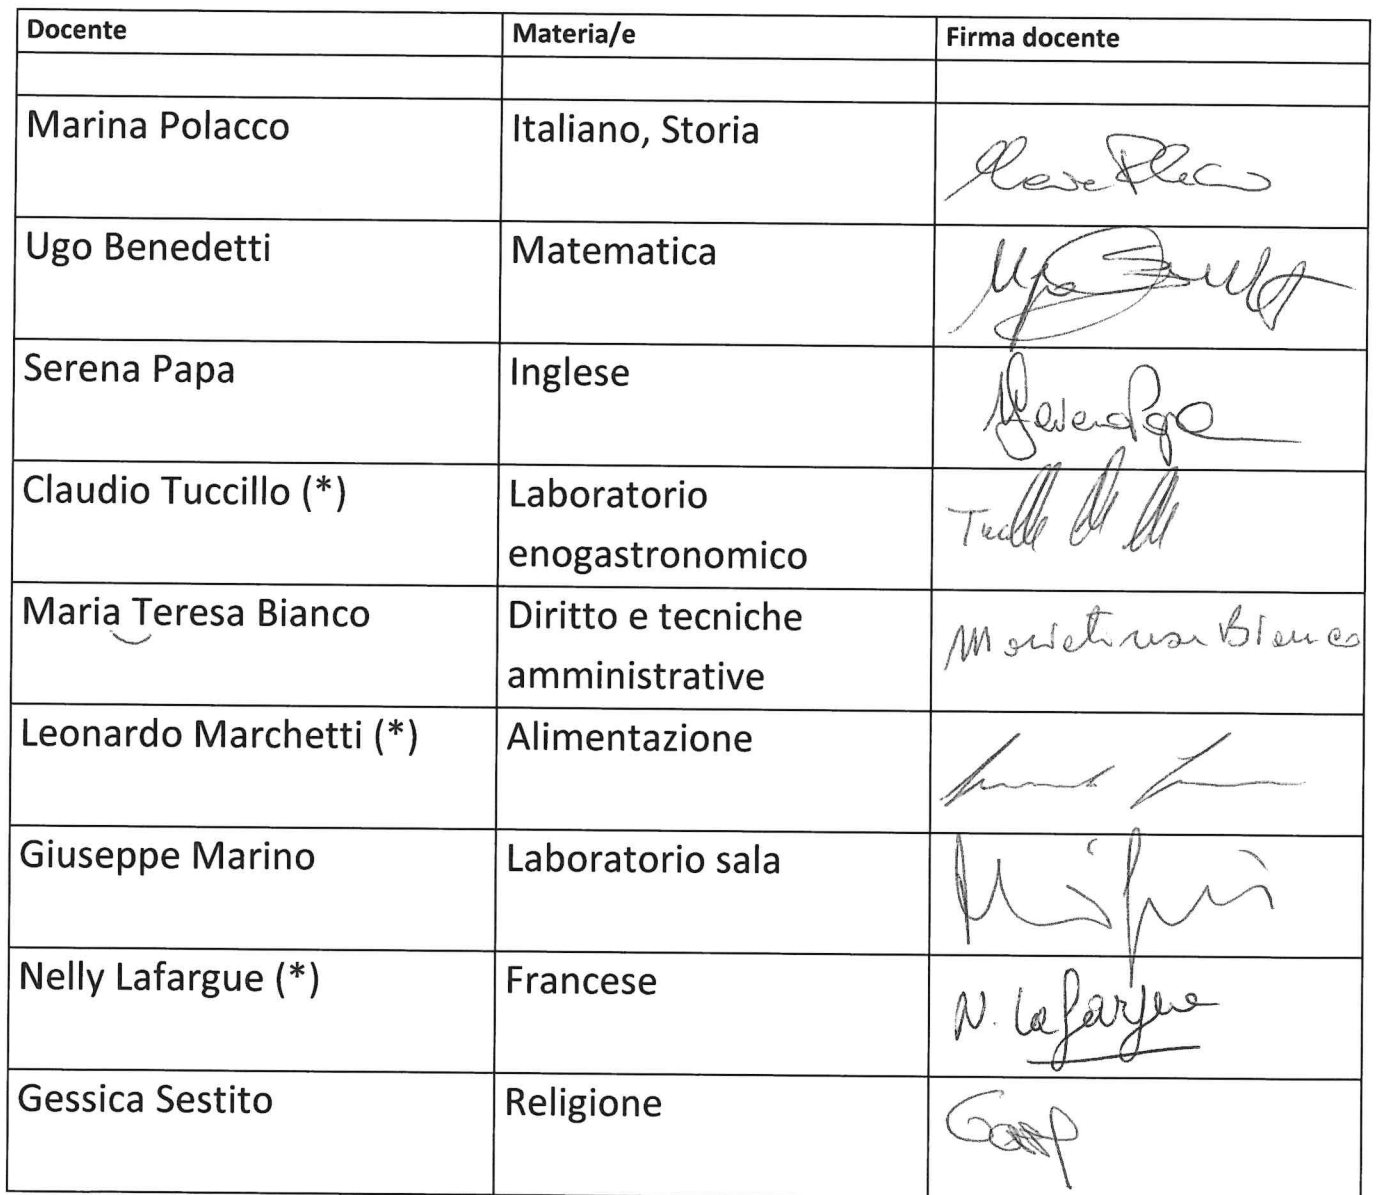 Docente Materia/e Firma docente
Marina Polacco Italiano, Storia
Ugo Benedetti Matematica
Serena Papa Inglese Serena Papa
Claudio Tuccillo (*) Laboratorio
enogastronomico
Maria Teresa Bianco Diritto e tecniche Mariateresa Bianco
amministrative
Leonardo Marchetti (*) Alimentazione
Giuseppe Marino Laboratorio sala
Nelly Lafargue (*) Francese N. Lafargue
Gessica Sestito Religione